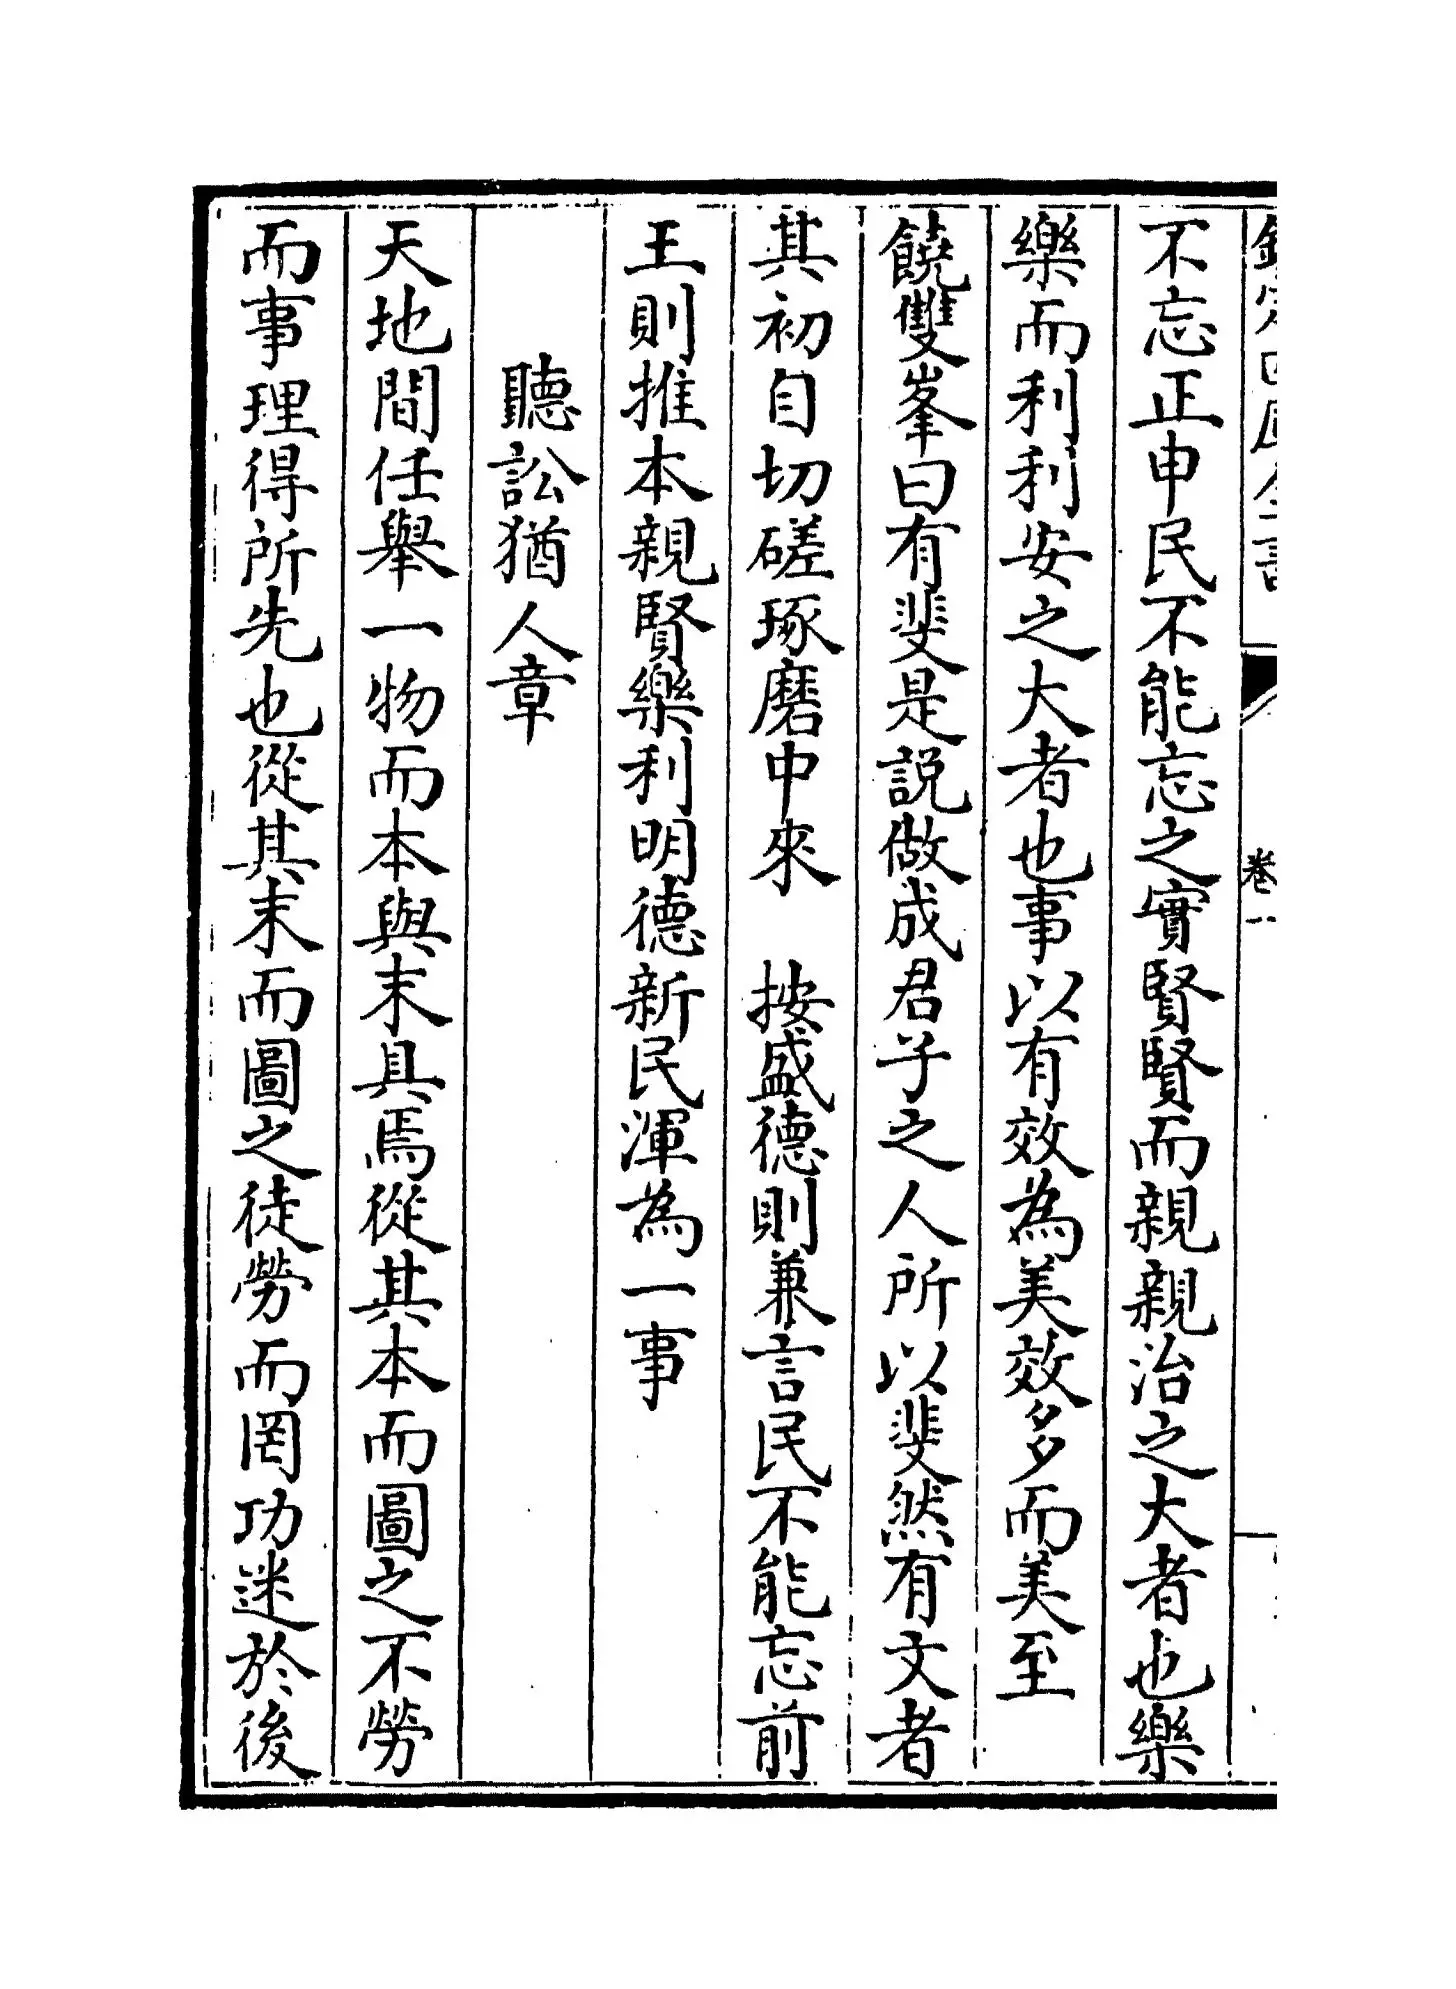 欽定四庫全書
卷一
不忘正申民不能忘之實賢賢而親親治之大者也樂
樂而利利安之大者也事以有效為美效多而美至
饒雙峯曰有斐是說做成君子之人所以斐然有文者
其初自切磋琢磨中來　按盛德則兼言民不能忘前
王則推本親賢樂利明德新民渾為一事
聽訟猶人章
天地間任舉一物而本與末具焉從其本而圖之不勞
而事理得所先也從其末而圖之徒勞而罔功迷於後